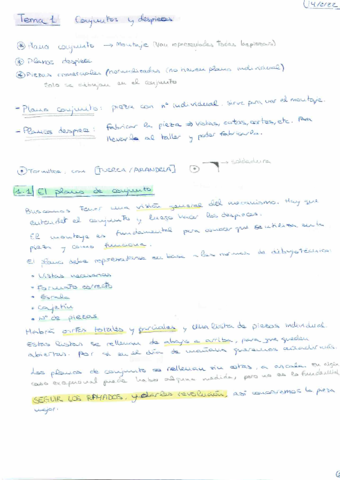 Tema 1. Conjuntos y despieces
Plano conjunto → Montaje (Van representadas todas las piezas)
Planos despiece
Piezas comerciales (normalizadas) (no tienen plano individual)
Solo se dibujan en el conjunto
- Plano conjunto: pieza con nº individual sirve para ver el montaje.
- Planos despiece: Fabricar la pieza → vistas, cortes, etc. Para
llevarlo al taller y poder fabricarlo.
Tornillos: [TUERCA/ARANDELA]
→ soldadura
1.1 El plano de conjunto
Buscamos tener una visión general del mecanismo. Hay que
entender el conjunto y luego hacer los despieces.
El montaje es fundamental para conocer que se utiliza en la
pieza y como funciona.
El plano debe representarse en base a las normas de dibujo técnico
• Vistas necesarias
• Formato correcto
• Escala
• Cajetín
• Nº de piezas
Habrá cortes totales y parciales y una lista de piezas individual.
Estas listas se rellenan de abajo a arriba, para que queden
abiertas. Por si en el día de mañana queremos
Los planos de conjunto se rellenan sin cotas, a escala. En algún
caso excepcional puede haber alguna medida, pero no es lo fundamental
SEGUIR LOS RAYADOS, y así conocemos la pieza
mejor.